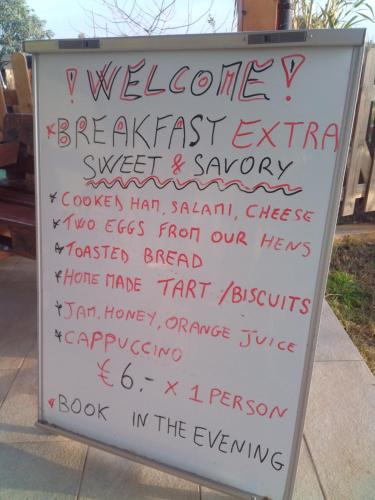 ! WELCOME !
* BREAKFAST EXTRA
SWEET & SAVORY
* COOKED HAM, SALAMI, CHEESE
* TWO EGGS FROM OUR HENS
* TOASTED BREAD
* HOME MADE TART / BISCUITS
* JAM, HONEY, ORANGE JUICE
* CAPPUCCINO
€ 6.- x 1 PERSON
* BOOK IN THE EVENING